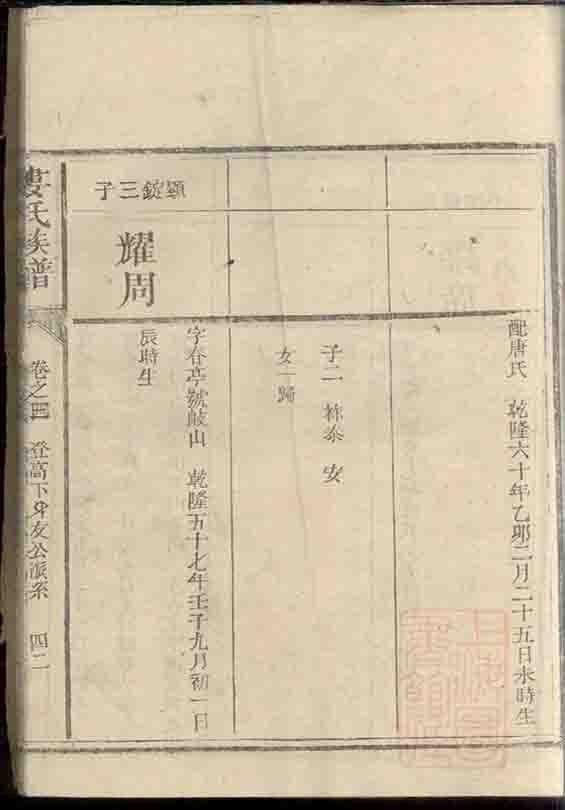 配唐氏 乾隆六十年乙卯二月二十五日未時生
子二 泰 安
女一歸
顯錠三子
耀周
字春亭號岐山 乾隆五十七年壬子九月初一日
辰時生
婁氏族譜 卷之四 登高下 友公派系 四二
上海圖書館藏